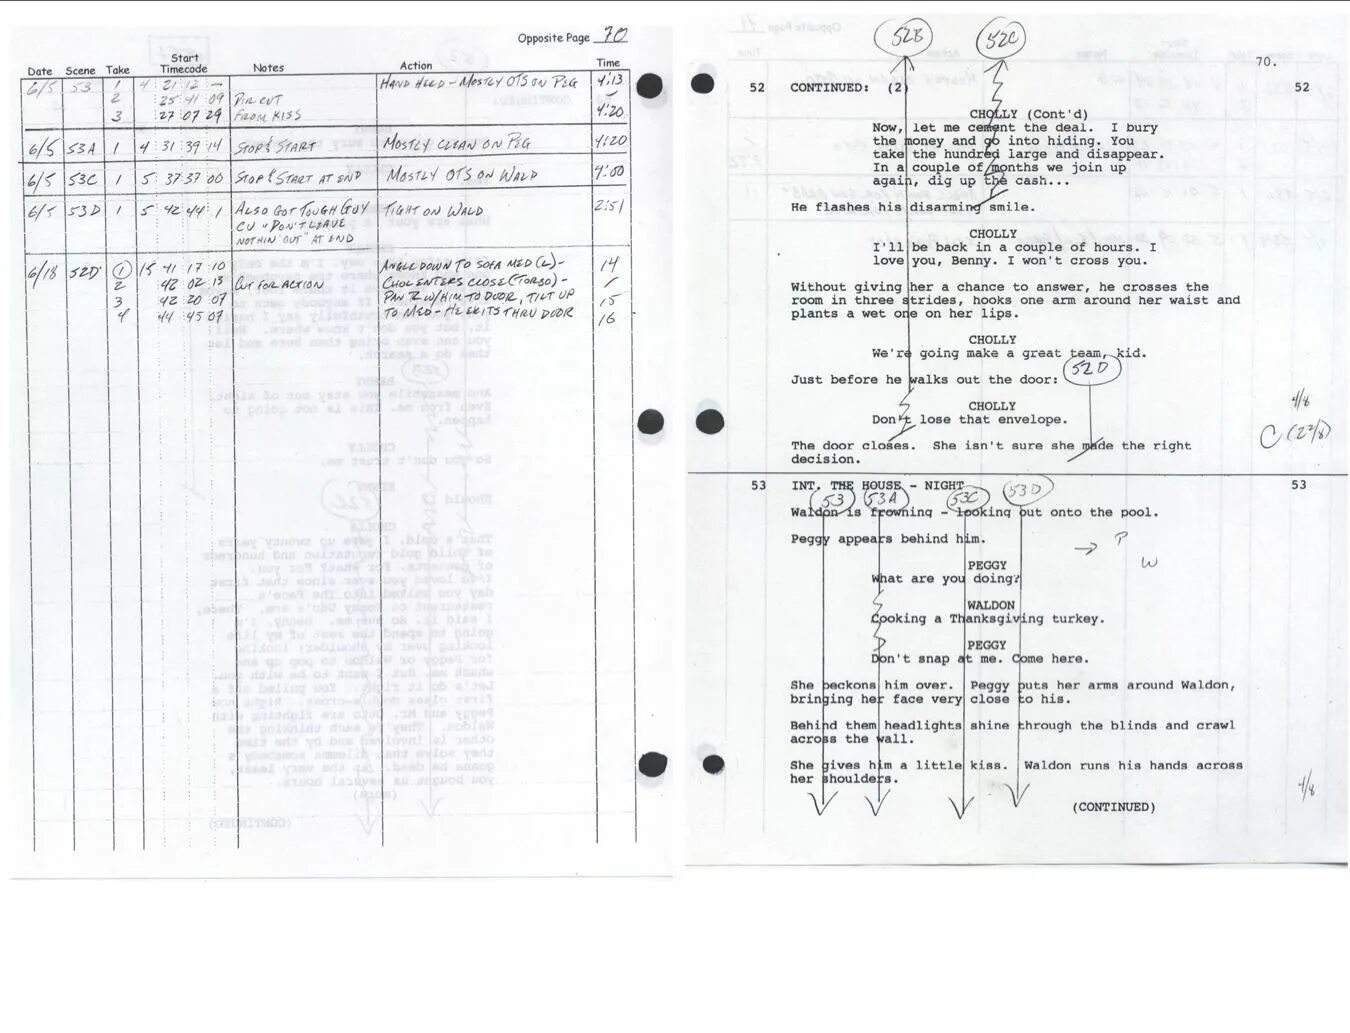 Opposite Page 70
Date Scene Take Start Timecode Notes Action Time
6/5 53 1 4 21 12 — HAND HELD - MOSTLY OTS ON PEG 4:13
2 25 41 09 PIR CUT
3 27 07 29 FROM KISS 4:20
6/5 53A 1 4 31 39 14 STOP & START MOSTLY CLEAN ON PEG 4:20
6/5 53C 1 5 37 37 00 STOP & START AT END MOSTLY OTS ON WALD
6/5 53D 1 5 42 44 1 ALSO GOT TOUGH GUY TIGHT ON WALD 2:51
CU "DON'T LEAVE
NOTHIN' OUT" AT END
6/18 52D 1 15 41 17 10 ANGLE DOWN TO SOFA MED (L) - 14
2 42 02 13 CUT FOR ACTION CHOL ENTERS CLOSE (TORSO) -
3 42 20 07 PAN R W/HIM TO DOOR, TILT UP 15
4 44 45 07 TO MED - HE EXITS THRU DOOR 16
52B 52C
70.
52 CONTINUED: (2) 52
CHOLLY (Cont'd)
Now, let me cement the deal. I bury
the money and go into hiding. You
take the hundred large and disappear.
In a couple of months we join up
again, dig up the cash...
He flashes his disarming smile.
CHOLLY
I'll be back in a couple of hours. I
love you, Benny. I won't cross you.
Without giving her a chance to answer, he crosses the
room in three strides, hooks one arm around her waist and
plants a wet one on her lips.
CHOLLY
We're going make a great team, kid.
52D
Just before he walks out the door:
CHOLLY
Don't lose that envelope.
4/8
C (2 2/8)
The door closes. She isn't sure she made the right
decision.
53 INT. THE HOUSE - NIGHT 53
53 53A 53C 53D
Waldon is frowning - looking out onto the pool.
Peggy appears behind him.
→ P
W
PEGGY
What are you doing?
WALDON
Cooking a Thanksgiving turkey.
PEGGY
Don't snap at me. Come here.
She beckons him over. Peggy puts her arms around Waldon,
bringing her face very close to his.
Behind them headlights shine through the blinds and crawl
across the wall.
She gives him a little kiss. Waldon runs his hands across
her shoulders.
4/8
(CONTINUED)